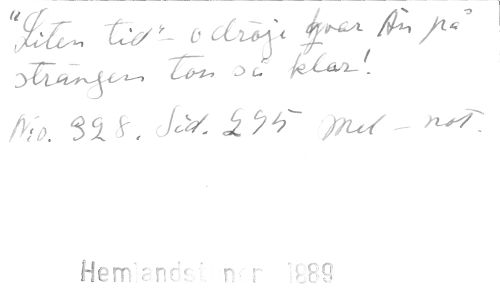 "Liten tid" – o dröje qvar Än på
strängen ton så klar!
No. 328. Sid. 295 Mel – not.
Hemlandst ner 1889